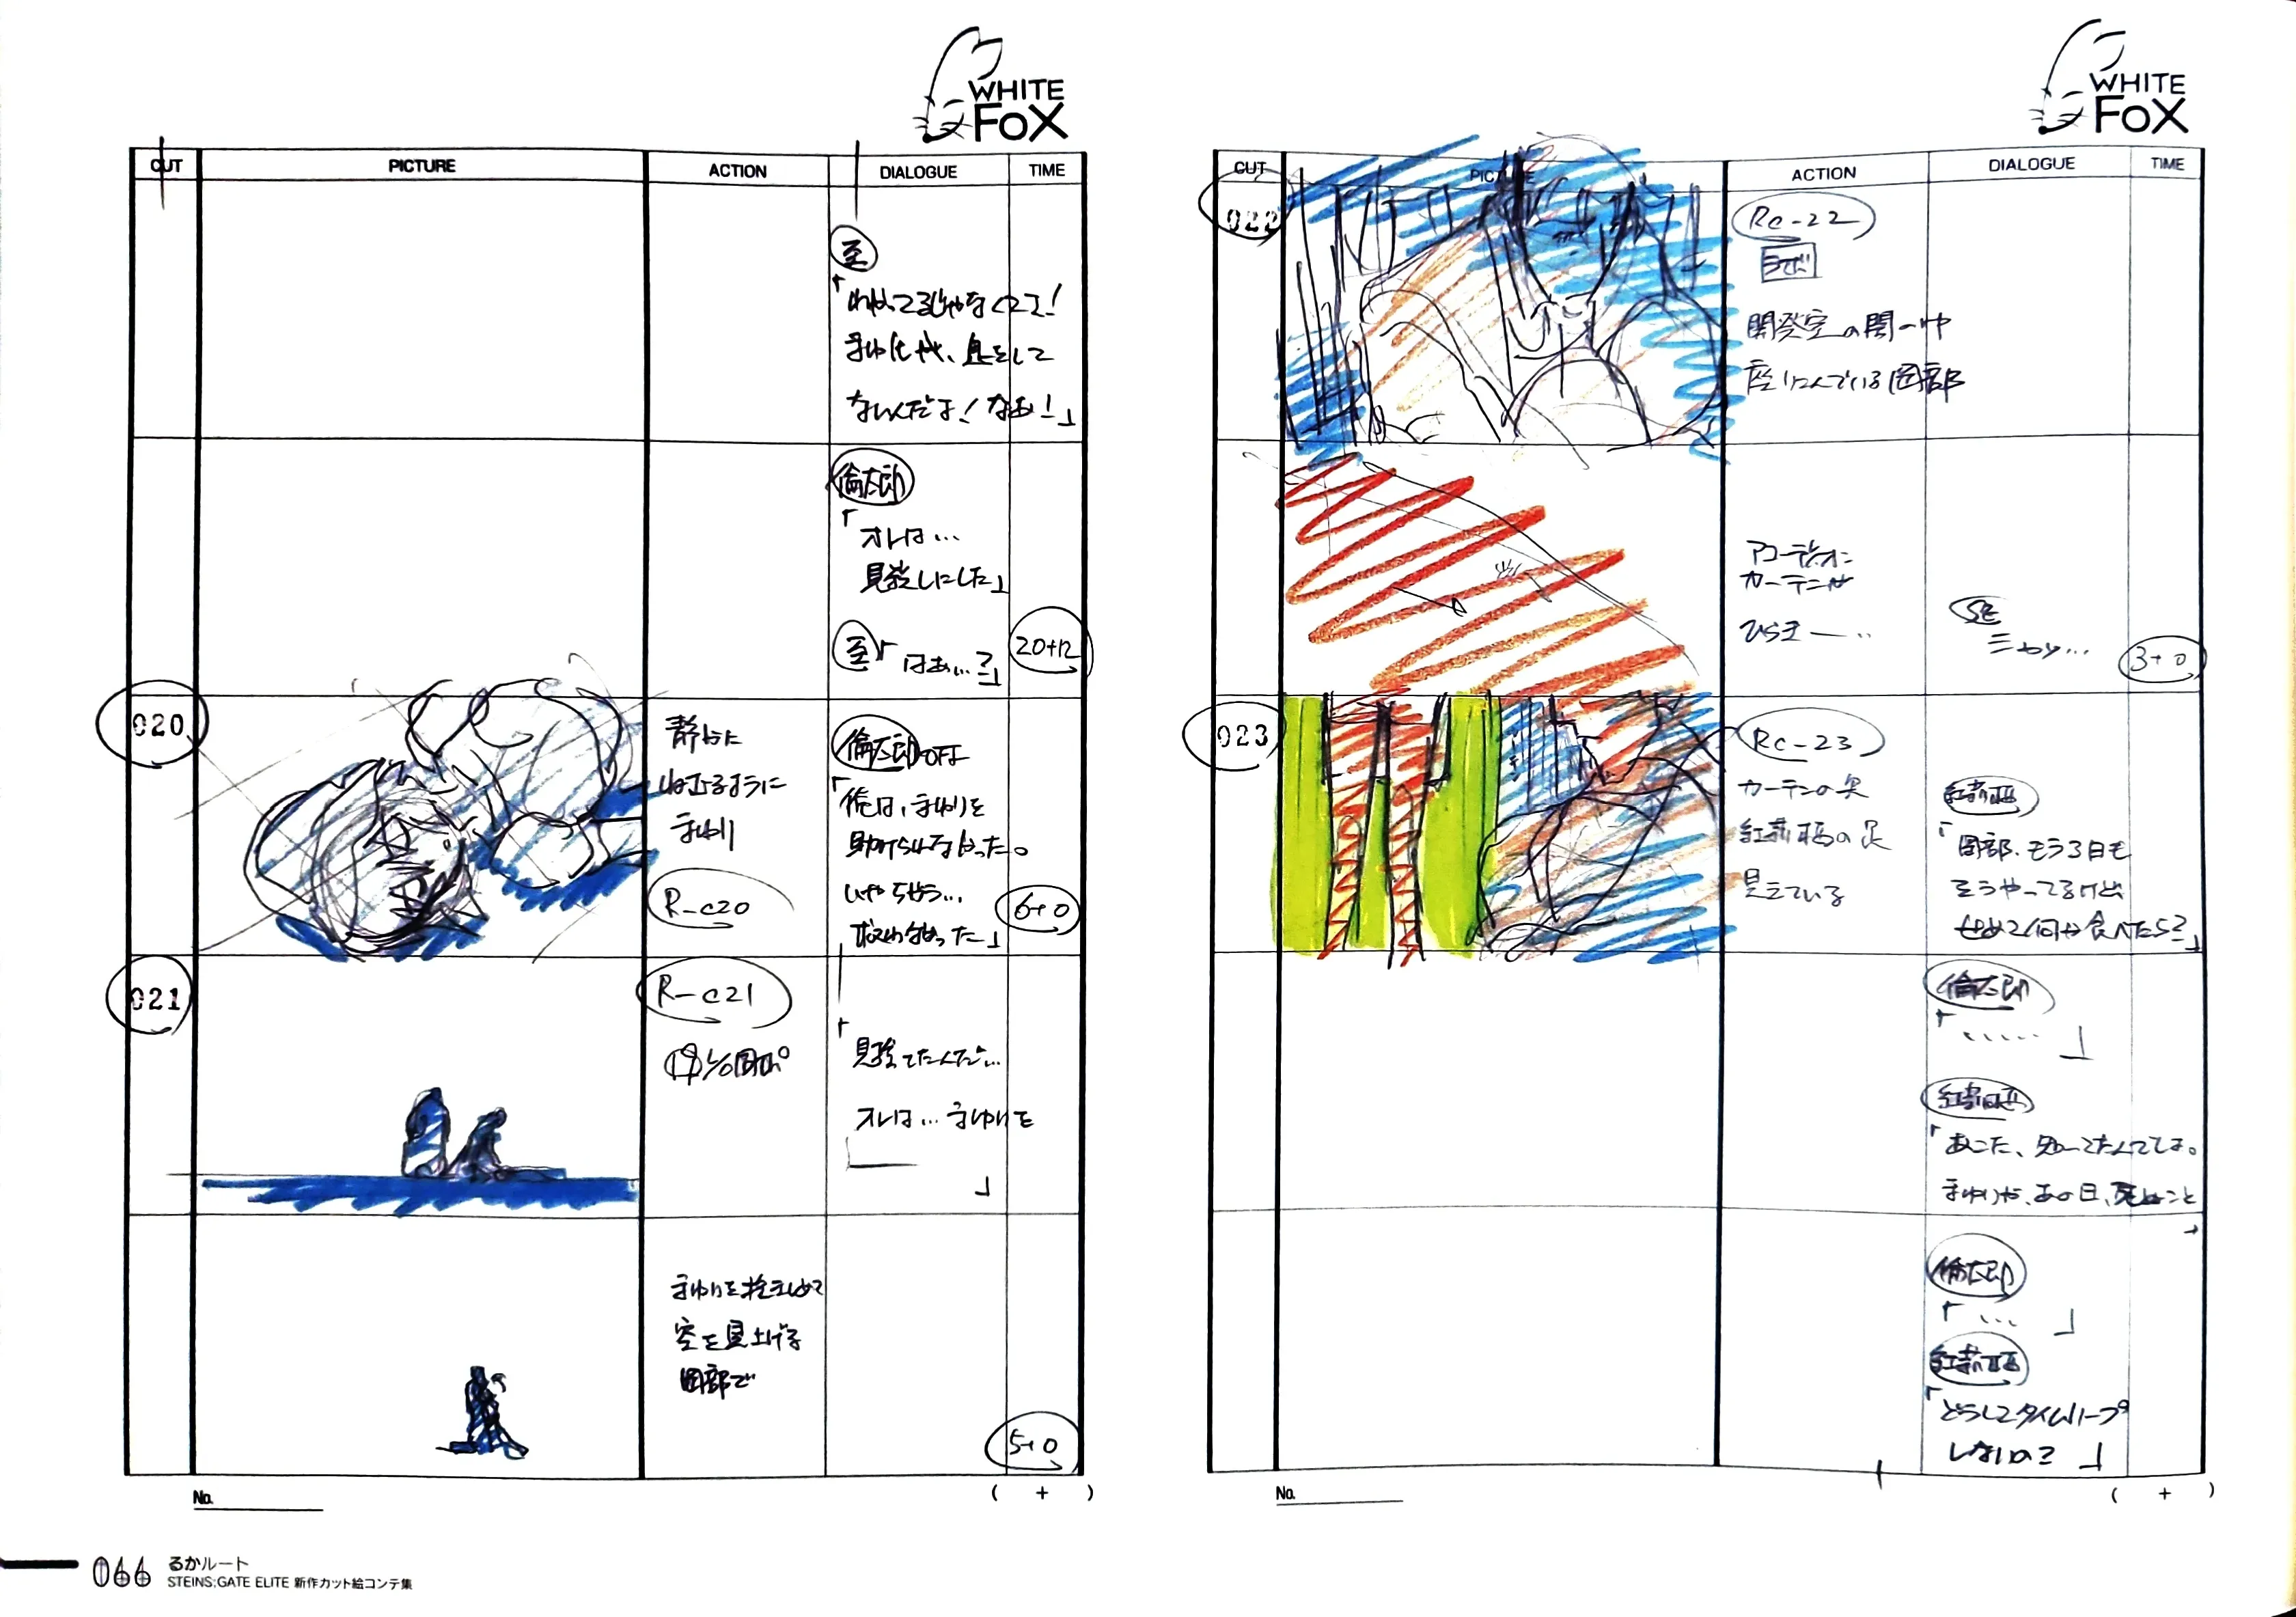 WHITE
FOX
CUT
PICTURE
ACTION
DIALOGUE
TIME
至
まゆ氏が、息をして
ないんだよ！なあ！」
倫太郎
「オレは…
見殺しにした」
至「はあ…？」
20+12
020
静かに
まゆり
R-c20
倫太郎 OFF
「俺は、まゆりを
助けられなかった。
いやちがう…
救わなかった」
6+0
021
R-c21
「見捨てたんだ…
オレは…まゆりを
」
まゆりを抱きしめて
空を見上げる
岡部で
5+0
No.
( + )
WHITE
FOX
CUT
PICTURE
ACTION
DIALOGUE
TIME
022
Rc-22
ラボ
開発室の闇の中
座りこんでいる岡部
アコーディオン
カーテンが
ひらき
SE
シャッ…
3+0
023
Rc-23
カーテンの奥
紅莉栖の足
見えている
紅莉栖
「岡部、もう3日も
そうやってるけど
せめて何か食べたら？」
倫太郎
「……」
紅莉栖
「あんた、知ってたんでしょ。
まゆりが、あの日、死ぬこと
」
倫太郎
「…」
紅莉栖
「どうしてタイムリープ
しないの？」
No.
( + )
066
るかルート
STEINS;GATE ELITE 新作カット絵コンテ集